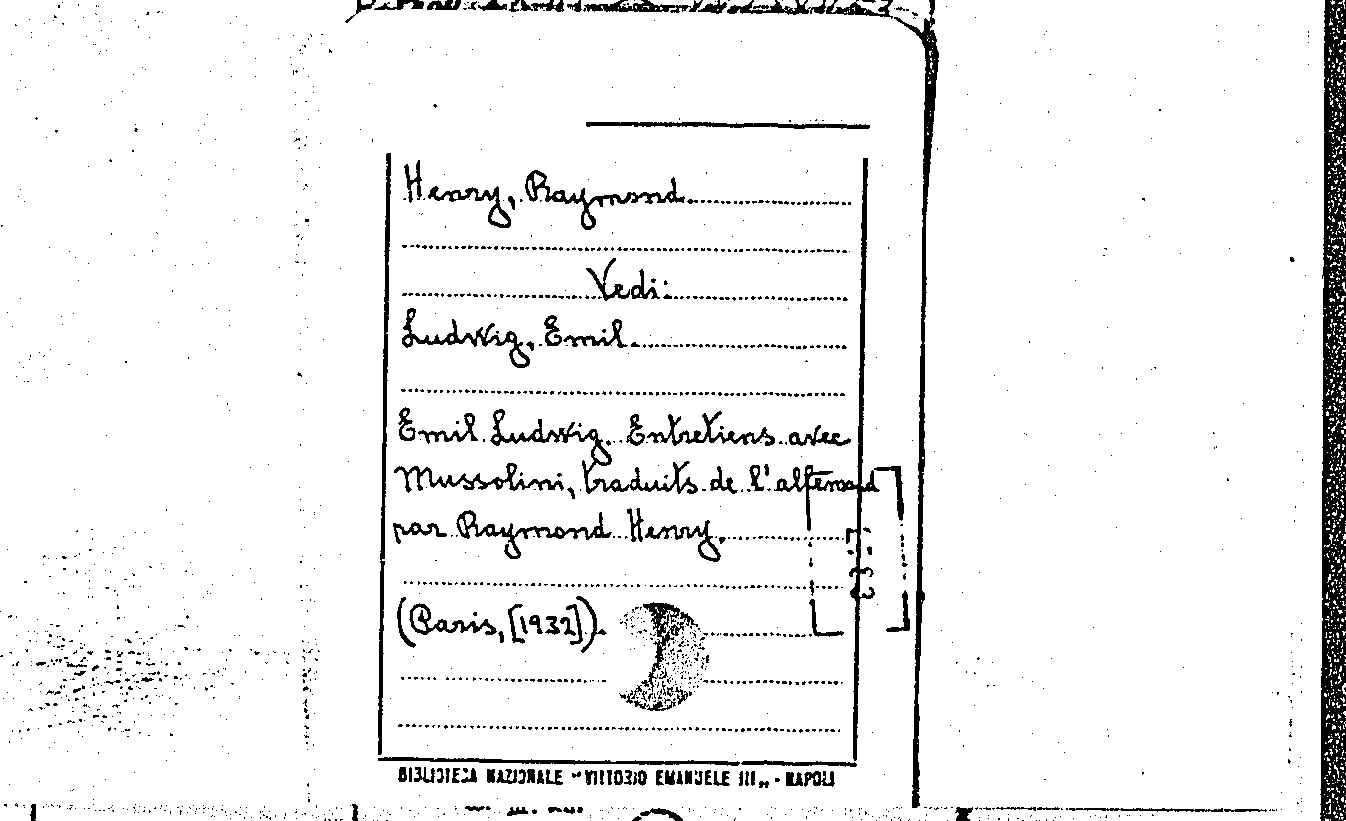 Henry, Raymond.
Vedi:
Ludwig, Emil.
Emil Ludwig. Entretiens avec
Mussolini, traduits de l'allemand
par Raymond Henry.
(Paris, [1932]).
BIBLIOTECA NAZIONALE "VITTORIO EMANUELE III„ - NAPOLI